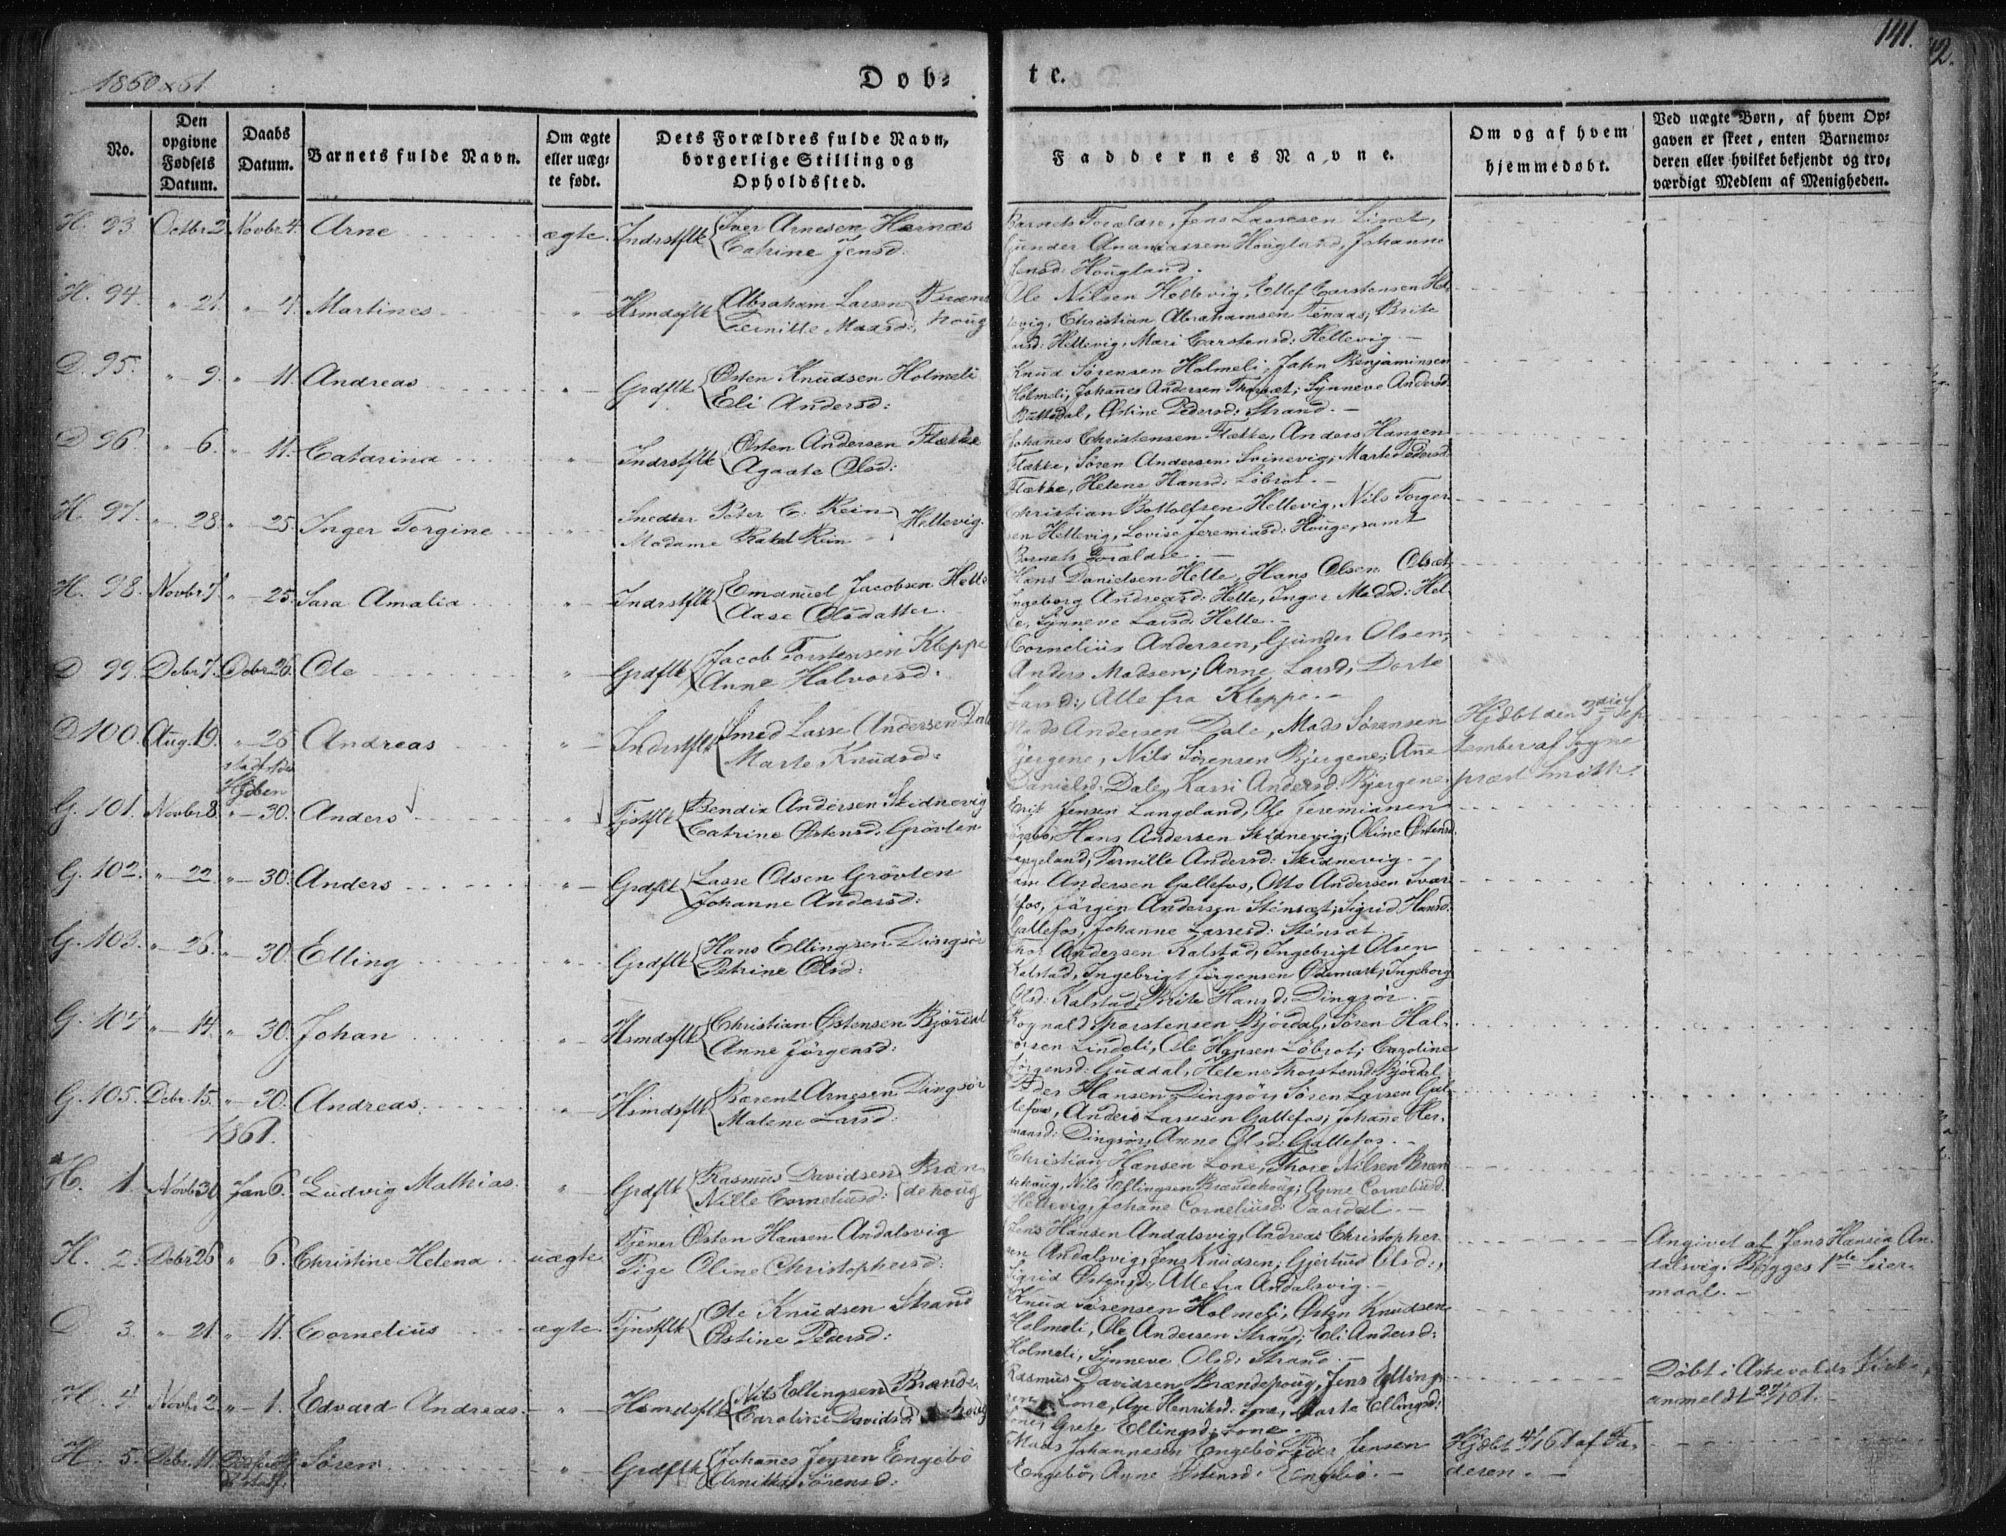 1860 & 61
Døb-
te.
141.
No.
Den opgivne Fødsels Datum.
Daabs Datum.
Barnets fulde Navn.
Om ægte eller uæg-te født.
Dets Forældres fulde Navn, borgerlige Stilling og Opholdssted.
Faddernes Navne.
Om og af hvem hjemmedøbt.
Ved uægte Børn, af hvem Op-gaven er skeet, enten Barnemo-deren eller hvilket bekjendt og tro-værdigt Medlem af Menigheden.
H. 93. Octbr 2 Novbr 4. Arne ægte. Indrstflk Iver Arnesen Hærnæs
Catrine Jensd:
Barnets Forældre, Jens Lassesen
Gunder Ananiassen Hougland, Johanne
Jensd: Hougland.
H. 94. " 21. " 4. Martines " Hsmdsflk Abraham Larsen
Pernille Madsd:
Ole Nilsen Hellevig, Ellef Carstensen Hel-
levig, Christian Abrahamsen Tenaas, Brite
Hellevig, Mari Carstensd: Hellevig.
D. 95. " 9. " 11. Andreas " Grdflk Østen Knudsen Holmeli
Eli Andersd:
Knud Sørensen Holmeli, Jahn Benjaminsen
Holmeli, Johanes Andersen Synneve Andersd:
Østine Pedersd: Strand.
D 96. " 6. " 11. Catarina " Indrstflk Østen Andersen Flække
Agaate Olsd:
Johanes Christensen Flække, Anders Hansen
Flække, Søren Andersen Svinevig, Marte Pedersd:
Flække, Helene Hansd: Løbrot.
H. 97. " 28. " 25. Inger Torgine " Snedker Peter C. Rein
Madame Rakel Rein Hellevig.
Christian Bottolfsen Hellevig, Nils Torger-
sen Hellevig, Lovise Jeremiasd: Houge, samt
Barnets Forældre.
H. 98. Novbr 7. " 25. Sara Amalia " Indrstflk Emanuel Jacobsen Helle
Aase Olsdatter.
Hans Danielsen Helle, Hans Olsen Olset,
Ingeborg Andreasd: Helle, Inger Madsd: Hel-
le, Synneve Larsd: Helle.
D 99. Debr 7. Debr 26. Ole " Grdflk Jacob Torstensen Kleppe
Anne Halvorsd:
Cornelius Andersen, Gunder Olsen,
Anders Madsen; Anne Larsd, Dorte
Larsd:, Alle fra Kleppe.
D 100. Aug. 19. " 26 Andreas " Indrstflk Smed Lasse Andersen Dale
Marte Knudsd:
Mads Andersen Dale, Mads Sørensen
Bjergene, Nils Sørensen Bjergene; Ane
Danielsd: Dale, Karri Andersd: Bjergene.
Hjdbt den 3die Sep-
tember af Sogne
præst Smitt.
G. 101. Novbr 8. " 30. Anders " Tjstflk Bendix Andersen Skidnevig
Catrine Østensd: Grøvlen
Jensen Langeland, Ole Jeremiasen
Hans Andersen Skidnevig; Oline Østensd:
Langeland, Pernille Andersd: Skidnevig.
G. 102. " 22 " 30. Anders " Grdflk Lasse Olsen Grøvlen
Johanne Andersd:
Andersen Gallefos, Otto Andersen Svar-
tefos, Jørgen Andersen Stensæt; Sigrid Hansd:
Gallefos, Johanne Lassesd: Stensæt.
G. 103. " 26. " 30. Elling " Grdflk Hans Ellingsen Dingsør
Petrine Olsd:
Thor Andersen Kalstad, Ingebrigt Olsen
Kalstad, Ingebrigt Jørgensen Ødemark; Ingeborg
Olsd: Kalstad, Brite Hansd: Dingsør.
G. 104. " 14. " 30. Johan " Hsmdsflk Christian Østensen Bjørdal
Anne Jørgensd:
Rognald Thorstensen Bjørdal, Søren Hal-
vorsen Lindeli, Ole Hansen Løbrot; Caroline
Jørgensd: Guddal, Helene Thorstensd: Bjørdal
G. 105. Debr. 15. " 30. Andreas. " Hsmdsflk Barent Arnesen Dingsør
Malene Larsd:
Peder Hansen Dingsør, Søren Larsen Gal-
lefos, Anders Lassesen Gallefos; Johane Her-
mansd: Dingsør, Anne Olsd: Gallefos.
1861.
H. 1. Novbr 30 Jan 6. Ludvig Mathias. " Grdflk Rasmus Davidsen
Nille Corneliusd: Bræn-
dehoug
Christian Hansen Lone, Thore Nilsen Bræn-
dehoug, Nils Ellingsen Brændehoug; Anne Corneliusd:
Hellevig, Johane Corneliusd: Vaardal.
H. 2. Debr 26 " 6. Christine Helena uægte. Tjener Østen Hansen Andalsvig
Pige Oline Christophersd:
Jens Hansen Andalsvig, Andreas Christopher-
sen Andalsvig, Jens Knudsen; Gjertrud Olsd:,
Sigrid Østensd: Alle fra Andalsvig.
Angivet af Jens Hansen An-
dalsvig. Begges 1ste Leier-
maal.
D 3. " 21 " 11. Cornelius ægte. Tjnstflk Ole Knudsen Strand
Østine Pedersd:
Knud Sørensen Holmeli, Østen Knudsen
Holmeli, Ole Andersen Strand; Eli Andersd:
Holmeli, Synneve Olsd: Strand.
H. 4 Novbr 2 " 1. Edvard Andreas. " Hsmdsflk Nils Ellingsen Brænde-
Caroline Davidsd: houg
Rasmus Davidsen Brændehoug, Jens Elling-
sen Lone, Henriksd: Lone, Marte Ellingsd:
Lone, Grete Ellingsd: Lone.
Døbt i Askevolds Kirke,
anmeldt 27/1 61.
H. 5. Debr. 11 Søren " Grdflk Johanes Jensen Engebø
Sørensd:
Mads Johannesen Engebø, Peder Jensen
Engebø, Anne Østensd: Engebø.
Hjdbt 4/1 61 af Fa-
deren.